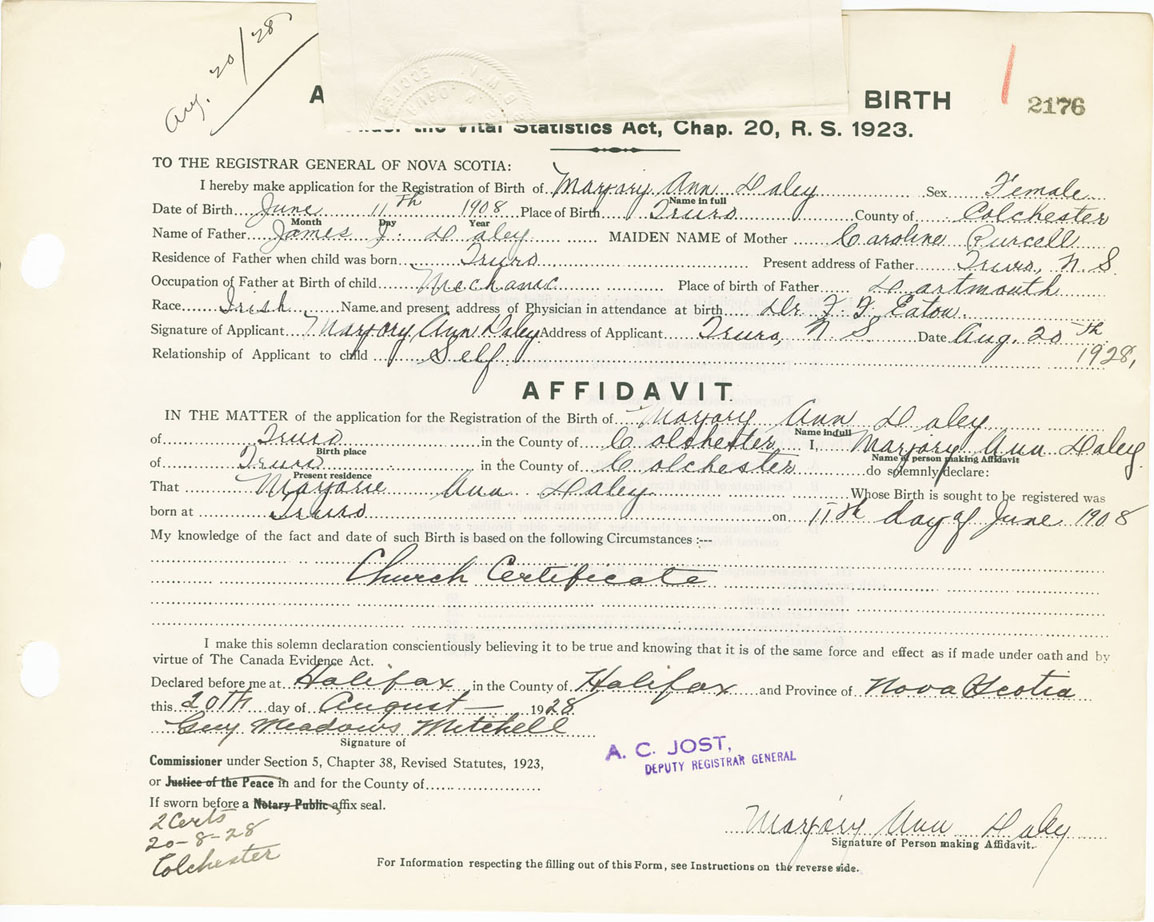 Aug. 20/28
A BIRTH 2176
Under the Vital Statistics Act, Chap. 20, R. S. 1923.
TO THE REGISTRAR GENERAL OF NOVA SCOTIA:
I hereby make application for the Registration of Birth of Marjory Ann Daley Sex Female
Name in full
Date of Birth June 11th 1908 Place of Birth Truro County of Colchester
Month Day Year
Name of Father James J. Daley MAIDEN NAME of Mother Caroline Purcell
Residence of Father when child was born Truro Present address of Father Truro, N. S.
Occupation of Father at Birth of child Mechanac Place of birth of Father Dartmouth
Race Irish Name and present address of Physician in attendance at birth Dr. F. F. Eaton
Signature of Applicant Marjory Ann Daley Address of Applicant Truro, N. S Date Aug. 20th
Relationship of Applicant to child Self 1928,
AFFIDAVIT
IN THE MATTER of the application for the Registration of the Birth of Marjory Ann Daley
Name in full
of Truro in the County of Colchester I, Marjory Ann Daley
Birth place Name of person making Affidavit
of Truro in the County of Colchester do solemnly declare:
Present residence
That Marjorie Ann Daley Whose Birth is sought to be registered was
born at Truro on 11th day of June 1908
My knowledge of the fact and date of such Birth is based on the following Circumstances :---
Church Certificate
I make this solemn declaration conscientiously believing it to be true and knowing that it is of the same force and effect as if made under oath and by
virtue of The Canada Evidence Act.
Declared before me at Halifax in the County of Halifax and Province of Nova Scotia
this 20TH day of August 1928
Guy Meadows Mitchell
Signature of
A. C. JOST,
DEPUTY REGISTRAR GENERAL
Commissioner under Section 5, Chapter 38, Revised Statutes, 1923,
or Justice of the Peace in and for the County of
If sworn before a Notary Public affix seal.
2 Certs
20-8-28
Colchester
Marjory Ann Daley
Signature of Person making Affidavit.
For Information respecting the filling out of this Form, see Instructions on the reverse side.